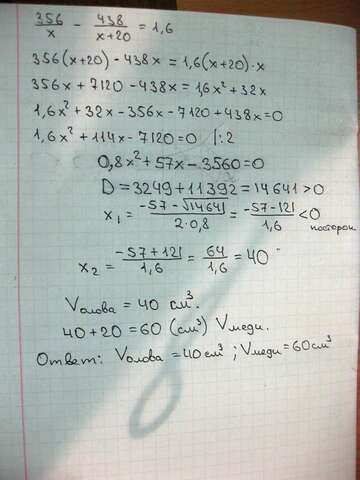 356/x - 438/(x+20) = 1,6
356(x+20) - 438x = 1,6(x+20)·x
356x + 7120 - 438x = 1,6x² + 32x
1,6x² + 32x - 356x - 7120 + 438x = 0
1,6x² + 114x - 7120 = 0 |:2
0,8x² + 57x - 3560 = 0
D = 3249 + 11392 = 14641 > 0
x₁ = (-57 - √14641)/(2·0,8) = (-57 - 121)/1,6 < 0 посторон
x₂ = (-57 + 121)/1,6 = 64/1,6 = 40
Vолова = 40 см³.
40 + 20 = 60 (см³) Vмеди.
Ответ: Vолова = 40 см³; Vмеди = 60 см³